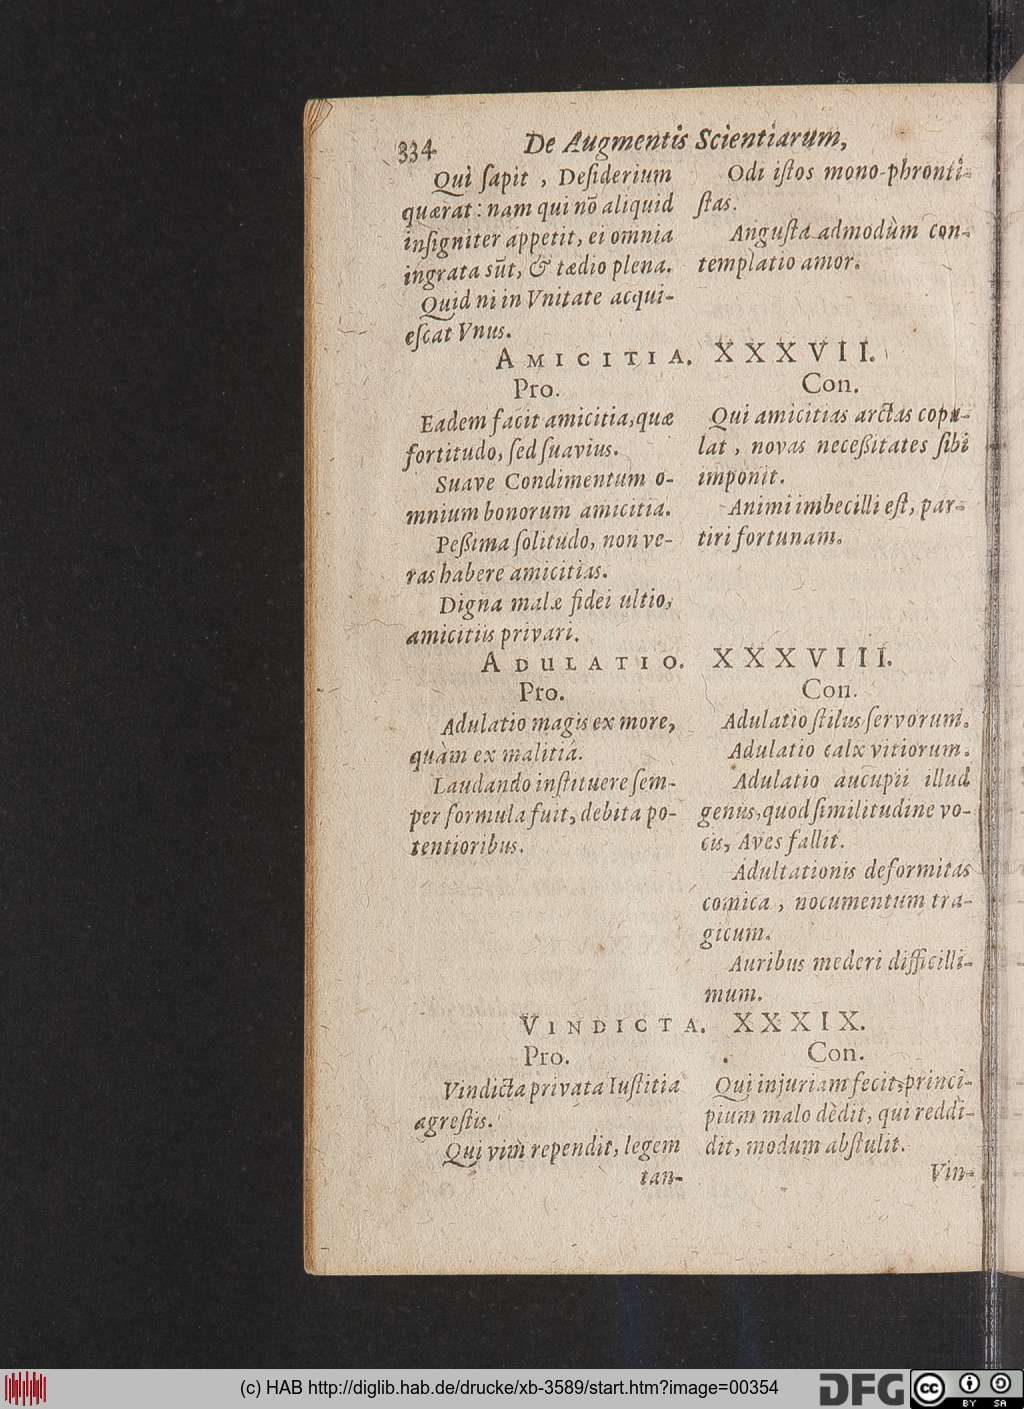 334 De Augmentis Scientiarum,
Qui ſapit , Deſiderium
quærat : nam qui nō aliquid
inſigniter appetit, ei omnia
ingrata sūt, & tædio plena.
Quid ni in Vnitate acqui-
eſcat Vnus.
Odi iſtos mono-phronti-
ſtas.
Anguſta admodùm con-
templatio amor.
AMICITIA. XXXVII.
Pro.
Eadem facit amicitia, quæ
fortitudo, ſed ſuavius.
Suave Condimentum o-
mnium bonorum amicitia.
Peßima ſolitudo, non ve-
ras habere amicitias.
Digna malæ fidei ultio,
amicitiis privari.
Con.
Qui amicitias arctas copu-
lat , novas neceßitates ſibi
imponit.
Animi imbecilli eſt, par-
tiri fortunam.
ADULATIO. XXXVIII.
Pro.
Adulatio magis ex more,
quàm ex malitiá.
Laudando inſtituere ſem-
per formula fuit, debita po-
tentioribus.
Con.
Adulatio ſtilus ſervorum.
Adulatio calx vitiorum.
Adulatio aucupii illud
genus, quod ſimilitudine vo-
cis, Aves fallit.
Adultationis deformitas
comica , nocumentum tra-
gicum.
Auribus mederi difficilli-
mum.
VINDICTA. XXXIX.
Pro.
Vindicta privata Iuſtitia
agreſtis.
Qui vim rependit, legem
tan-
Con.
Qui injuriam fecit, princi-
pium malo dèdit, qui reddi-
dit, modum abſtulit.
Vin-
(c) HAB http://diglib.hab.de/drucke/xb-3589/start.htm?image=00354
DFG
cc
BY SA